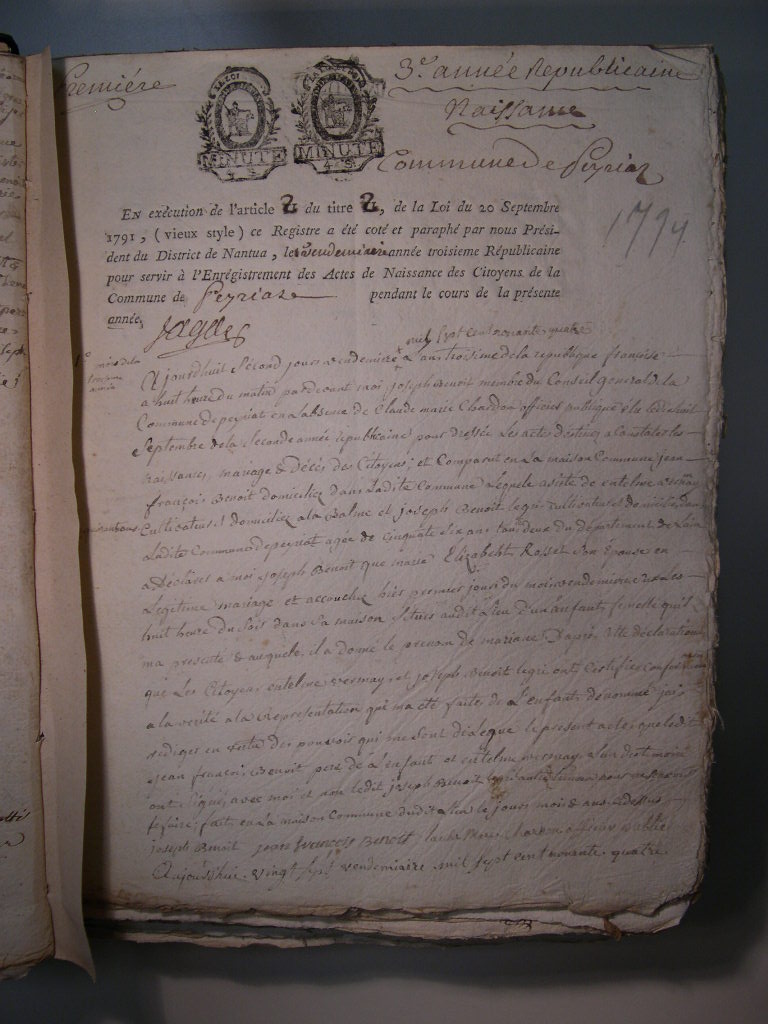 Premiére
3e année Republicaine
Naissance
Commune de Peyriaz
LA LOI
MINUTE
4 S.
MINUTE
4 S.
1794
En exécution de l'article 2 du titre 2, de la Loi du 20 Septembre
1791, (vieux style) ce Registre a été coté et paraphé par nous Prési-
dent du District de Nantua, le vendemiaire année troisieme Républicaine
pour servir à l'Enrégistrement des Actes de Naissance des Citoyens de la
Commune de Peyriaz pendant le cours de la présente
année,
mil sept cent nonante quatre
Ajourdhuit Second jours vendemiere L'ans troisime de la republique françaisse
a huit heure du matin pardevant moi joseph Benoit membre du Conseil general de la
Commune de peyriat en L'absence de Claude marie Chardon officier publique élu
Septembre de la Seconde année republicaine pour dressée Les actes destinez a Constater les
naissances, mariage & Décès des Citoyens, et Comparut en La maison Commune jean
françois Benoit domiciliez dans Ladite Commune Lequele asisté de entelme vermay
Cultivateurs domiciliez a la Balme et joseph Benoit legri cultivateurs et domicilié dans
Ladite Commune de peyriat agée de Cinquante six ans tous deux du departement de Lain
a Déclarés a moi joseph Benoit que marie Elizabeth Rosset Son Epouse en
Legitime mariage et accouchez hier premier jours du mois vendemiere Sur Les
huit heure du Soir dans Sa maison Situés audit Lieu d'un Enfant femelle quil
ma presenté & auquele il a donné le prenom de mariane D'après Cette déclaration
que Les Citoyens entelme vermay et joseph Benoit legri ont Certifiée Conforme
a la verité a la Représentation qui ma eté faite de L'enfant dénommé jais
rediger en vertu des pouvoir qui me sont délégué le present acte que ledit
jean françois Benoit pere de L'enfant et entelme vermay L'un des temoins
ont Signé avec moi et non ledit joseph Benoit legri
fait en La maison Commune dudit Lieu le jours mois & ans Cidessus
joseph Benoit jean françois Benoit officier public
Aujourd'huie vingt sept vendemiaire mil sept cent nonante quatre